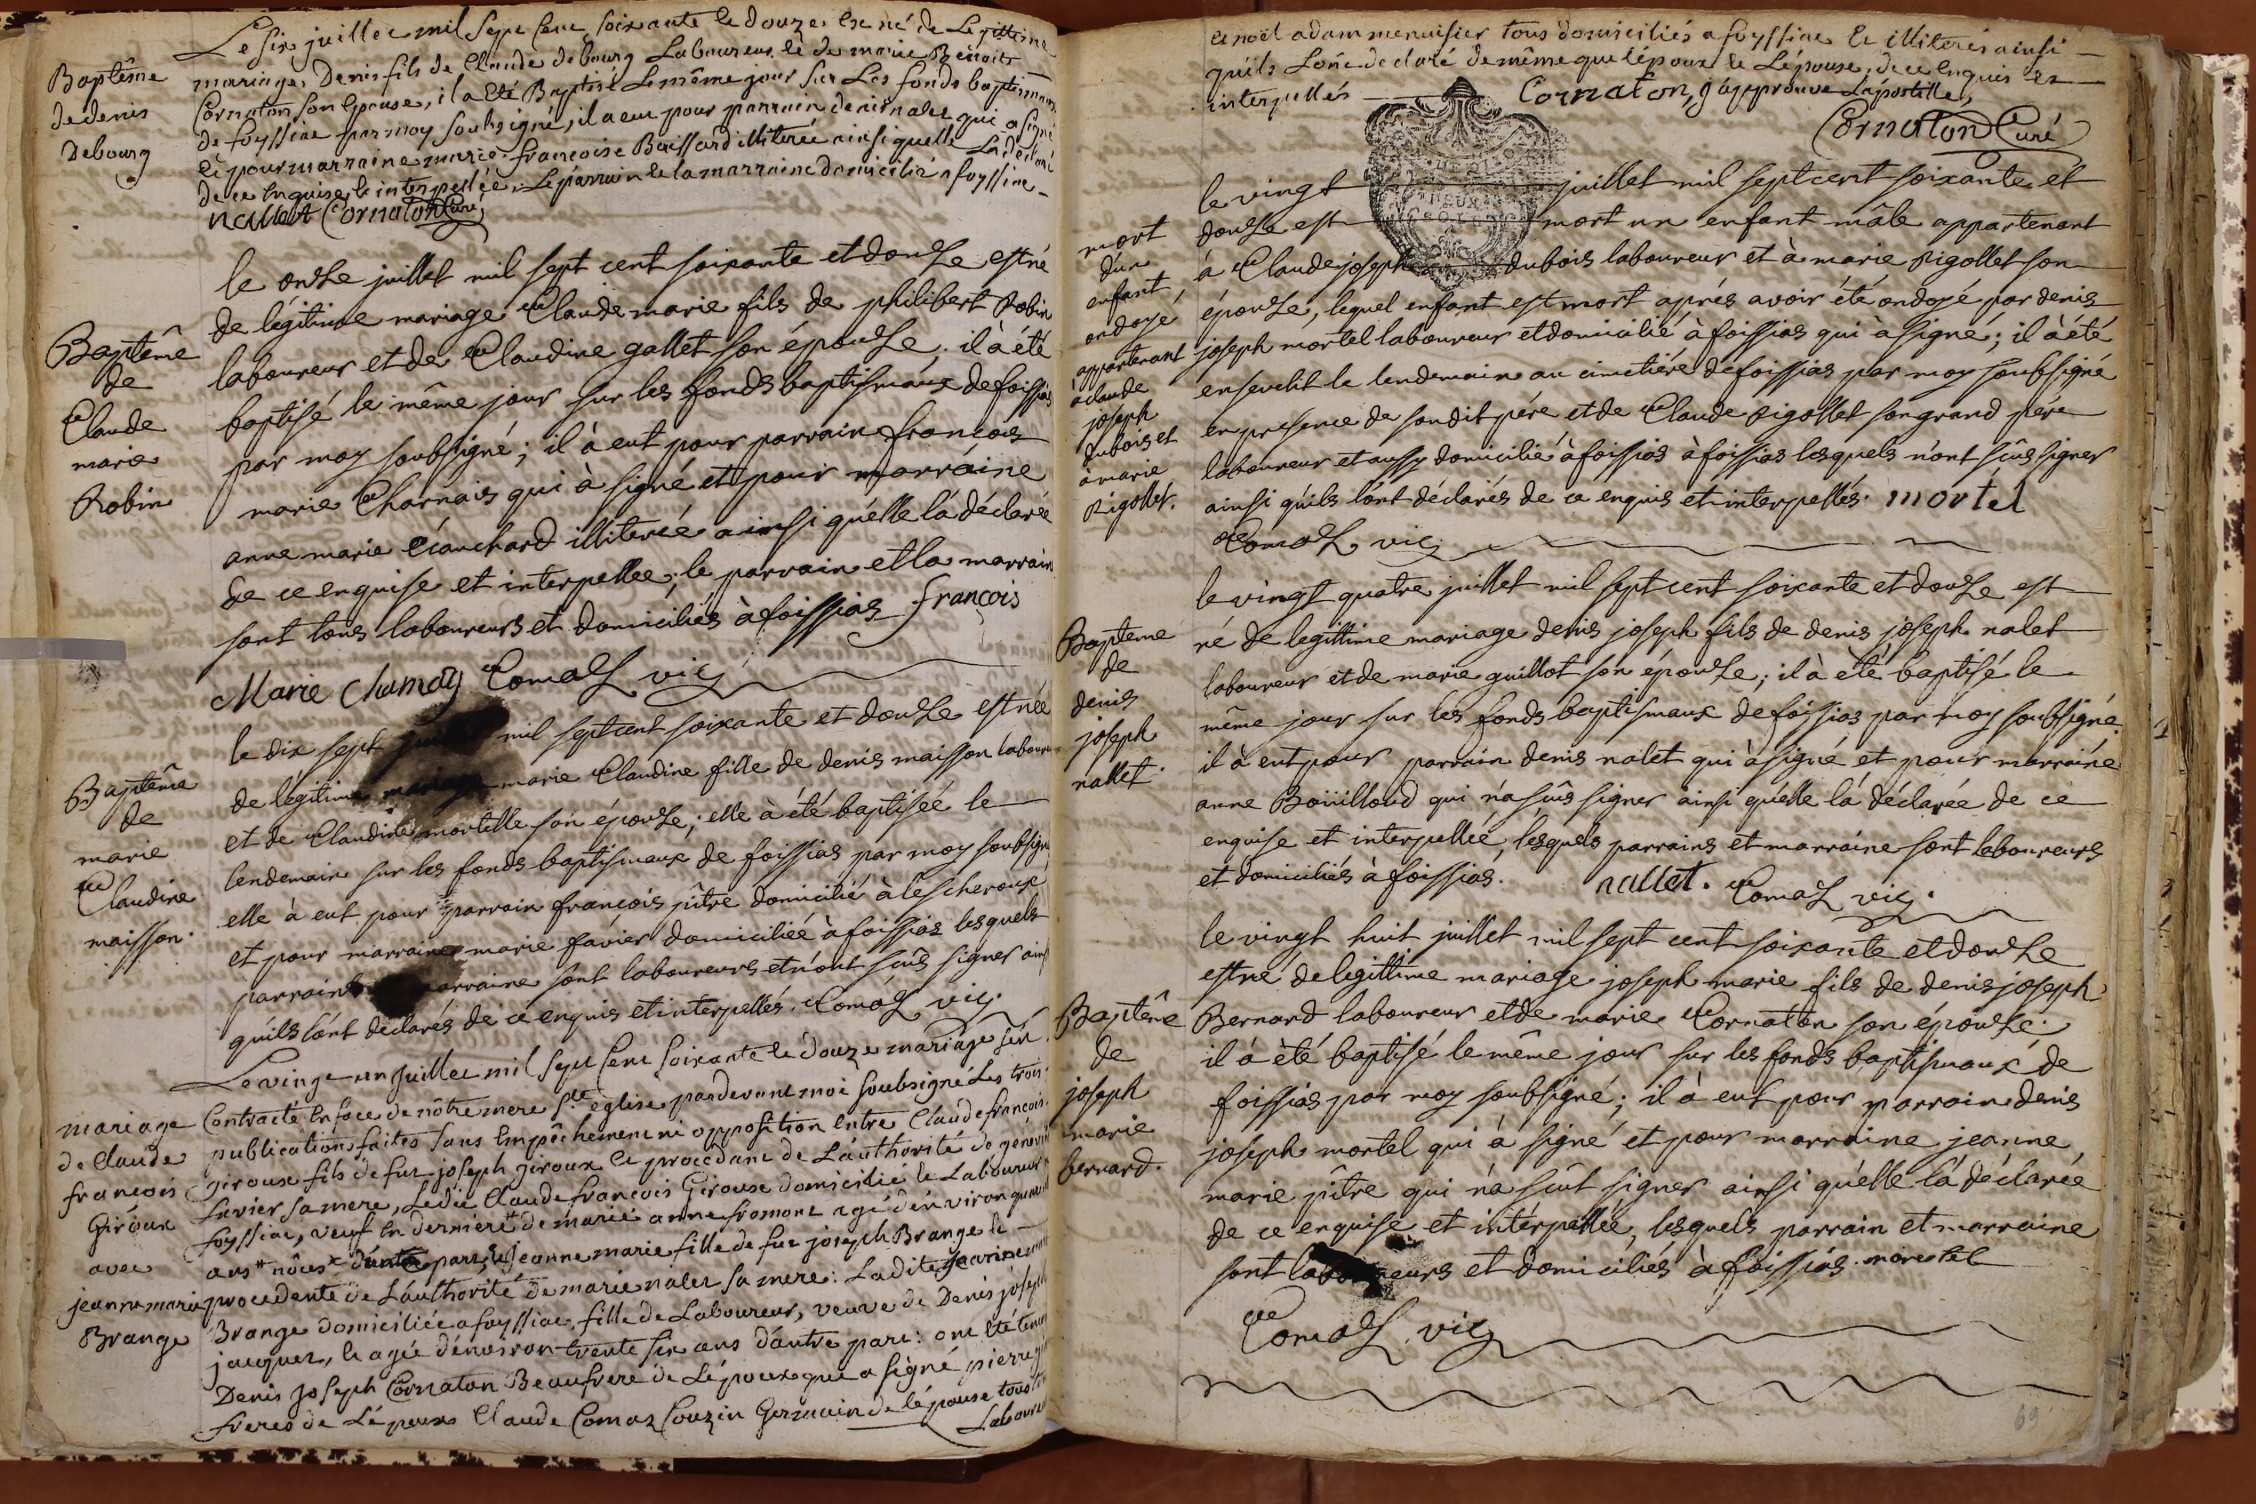 Le six juillet mil sept cent soixante et douze est né de Legittime
Baptême
de denis
Debourg
mariage, Denis fils de Claude debourg Laboureur et de marie Benoite
Cornaton son Epouse, il a Eté Baptisé Le même jour sur Les fonds baptismaux
de foyssiac par moy soubsigné, il a eue pour parrain denis nalet qui a signé
et pour marraine marie françoise Buissard illiterée ainsi quelle La déclaré
de ce Enquise et interpellée. Le parrain et la marraine domicilié a foyssiac
nallet Cornaton Curé
Baptême
de
Claude
marie
Robin
le onze juillet mil sept cent soixante et douze est né
de légitime mariage Claude marie fils de philibert Robin
laboureur et de Claudine gallet son épouse; il à été
baptisé le même jour sur les fonds baptismaux de foissias
par moy soubsigné; il à eut pour parrain françois
marie Charnais qui à signé et pour marraine
anne marie écauchard illiterée ainsi quélle lá déclarée
de ce enquise et interpellée; le parrain et la marraine
sont tous laboureurs et domiciliés à foissias françois
Marie Charnay Comas vic
Baptême
de
marie
Claudine
maisson.
le dix sept mil sept cent soixante et douze est née
de legitime mariage marie Claudine fille de denis maisson laboureur
et de Claudine mortelle son épouse; elle à été baptisée le
lendemain sur les fonds baptismaux de foissias par moy soubsigné
elle à eut pour parrain françois pitre domicilié à lescheroux
et pour marraine marie favier domiciliée à foissias lesquels
parrain marraine sont laboureurs et n'ont scûs signer ainsi
quils lónt déclarés de ce enquis et interpellés. Comas vic.
mariage
de Claude
francois
Giroux
avec
jeanne marie
Brange
Le vingt un juillet mil sept cent soixante et douze mariage sén
Contracté En face de nôtre mere Ste église pardevant moi soubsigné Les trois
publications faites sans Empêchement ni opposition entre Claude francois
giroux fils de fut joseph giroux et procedant de L'authorité de geneviè
favier sa mere, Ledit Claude francois Giroux domicilié et Laboureur
foyssiac, veuf En derniere de marie anne fromont agé d'énviron
ans nôces d'une part, et jeanne marie fille de fut joseph Brange et
procedente de L'authorité de marie nalet sa mere: Ladite jeanne
Brange domiciliée a foyssiac, fille de Laboureur, veuve de Denis joseph
jacquet, et agée d'énviron trente six ans dautre part: ont Eté témoins
Denis joseph Cornaton Beaufrere de L'époux qui a signé pierre
freres de L'époux Claude Comas Couzin Germain de l'épouse tous
Laboureurs
et noël adam menuisier tous domiciliés a foyssiac Et illiterés ainsi
qu'ils L'ont declaré de même que l'époux et L'épouse, de ce Enquis et
interpellés Cornaton, j'approuve La postille,
Cornaton Curé
mort
dun
enfant
ondoyé
appartenant
à claude
joseph
dubois et
à marie
Rigollet.
le vingt juillet mil sept cent soixante et
douze est mort un enfant mâle appartenant
à Claude joseph dubois laboureur et à marie Rigollet son
épouse, lequel enfant est mort aprés avoir été ondoyé par denis
joseph mortel laboureur et domicilié à foissias qui à signé; il à été
enseveli le lendemain au cimetiére de foissias par moy soubsigné
en presence de son dit pére et de Claude Rigollet son grand pére
laboureur et aussy domicilié à foissias à foissias lesquels n'ont scûs signer
ainsi quils lónt déclarés de ce enquis et interpellés. mortel
Comas vic
Bapteme
de
denis
joseph
nallet.
le vingt quatre juillet mil sept cent soixante et douze est
né de legittime mariage denis joseph fils de denis joseph nalet
laboureur et de marie guillot son épouse; il à été baptisé le
même jour sur les fonds baptismaux de foissias par moy soubsigné.
il à eut pour parrain denis nalet qui à signé et pour marraine
anne Boüilloud qui n'a scûs signer ainsi quélle lá déclarée de ce
enquise et interpellée, lesquels parrains et marraine sont laboureurs
et domiciliés à foissias. nallet. Comas vic.
Baptême
de
joseph
marie
bernard.
le vingt huit juillet mil sept cent soixante et douze
est né de legittime mariage joseph marie fils de denis joseph
Bernard laboureur et de marie Cornaton son épouse.
il à été baptisé le même jour sur les fonds baptismaux de
foissias par moy soubsigné; il à eut pour parrain denis
joseph mortel qui à signé et pour marraine jeanne
marie pitre qui n'a scût signer ainsi quélle lá déclarée
de ce enquise et intérpellée, lesquels parrain et marraine
sont laboureurs et domiciliés à foissias. mortel
Comas vic
69